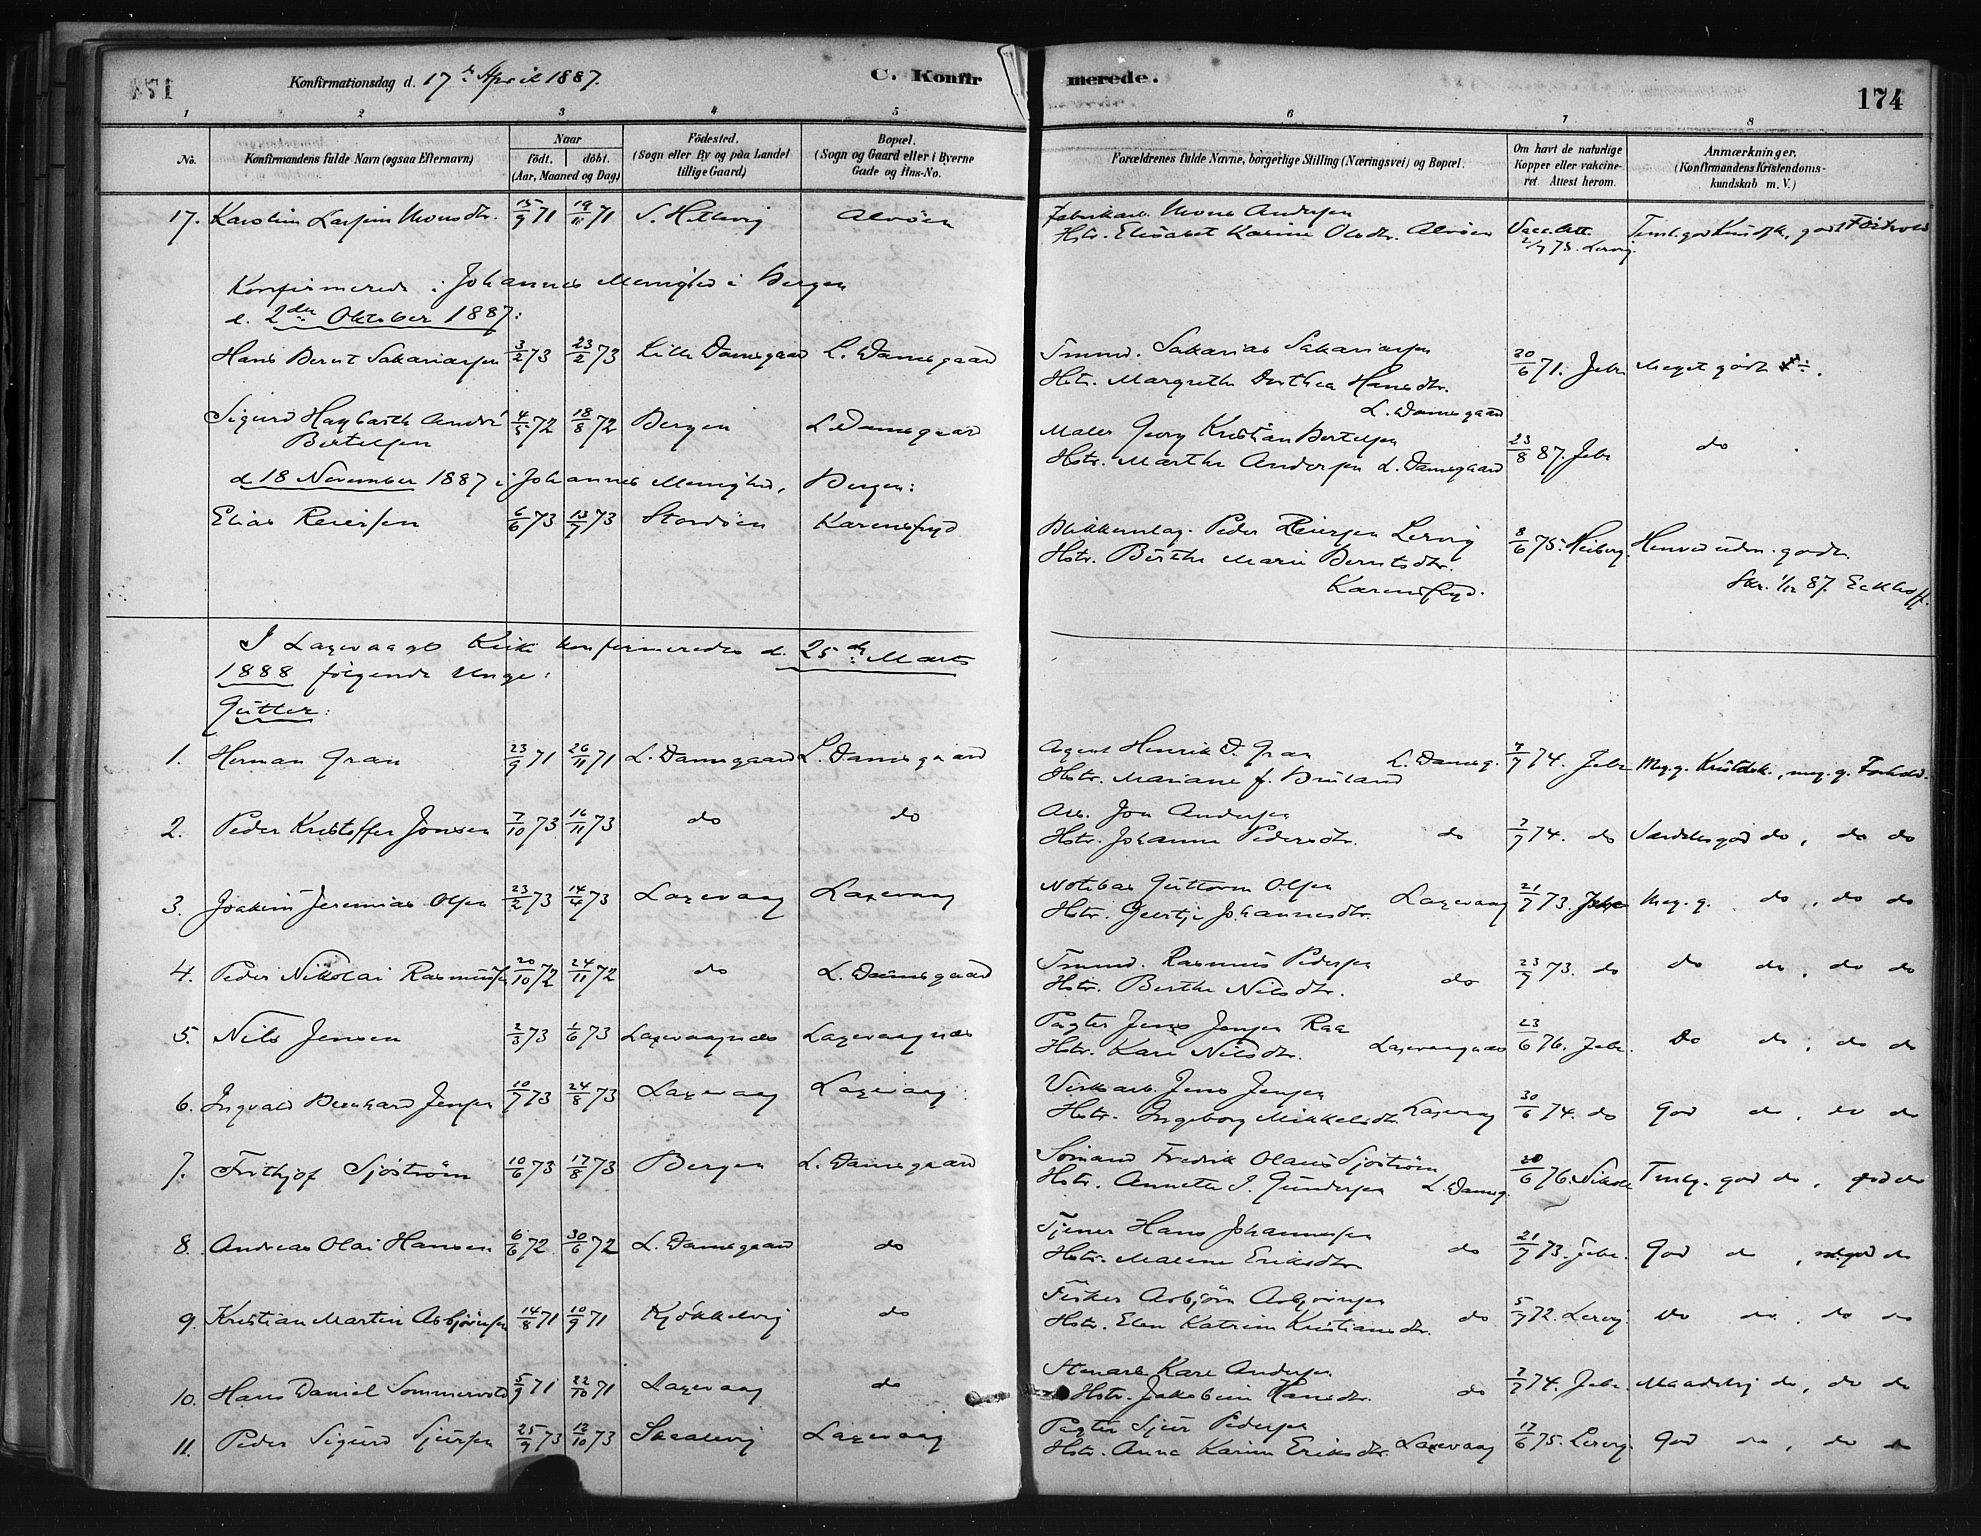 Konfirmationsdag d. 17de April 1887.
C. Konfirmerede.
174
1 2 3 4 5 6 7 8
No.
Konfirmandens fulde Navn (ogsaa Efternavn)
Naar
födt. | döbt.
(Aar, Maaned og Dag)
Födested.
(Sogn eller By og paa Landet
tillige Gaard)
Bopæl.
(Sogn og Gaard eller i Byerne
Gade og Hus-No.
Forældrenes fulde Navne, borgerlige Stilling (Næringsvei) og Bopæl.
Om havt de naturlige
Kopper eller vakcine-
ret. Attest herom.
Anmærkninger.
(Konfirmandens Kristendoms-
kundskab m. V.)
17. 15/9 71 19/11 71 Alvöen Fabrikarb. Mons Andersen
Hstr. Elisabet Karine Olsdtr. Alvöen
Konfirmerede i Johannes Menighed i Bergen
d. 2den Oktober 1887:
Hans Bernt Sakariassen 3/2 73 23/2 73 Lille Damsgaard L. Damsgaard Sakarias Sakariassen
Hstr. Margrethe Dorthea Hansdtr.
L. Damsgaard
20/6 71. Jebe Meget godt
Sigurd Hagbarth André
Bertelsen
4/5 72 18/8 72 Bergen L. Damsgaard Maler Georg Kristian Bertelsen
Hstr. Marthe Andersen L. Damsgaard
23/8 87. Jebe do
d. 18 November 1887 i Johannes Menighed, Bergen:
Elias Reiersen 6/6 73 13/7 73 Stordöen Karensfryd Blikkenslag. Peder Reiersen Lervig
Hstr. Berthe Marie Berntsdtr.
Karensfryd.
8/6 75. Heiberg.
87. Eckhoff.
I Laxevaags Kirke konfirmeredes d. 25de Marts
1888 følgende Unge:
Gutter:
1. Herman Gran 23/9 71 26/11 71 L. Damsgaard L. Damsgaard Agent Henrik D. Gran L. Damsg.
Hstr. Mariane f. Bruland
7/7 74. Jebe Meg. g. Kristdsk., meg. g. Forhold.
2. Peder Kristoffer Jonsen 7/10 73 16/11 73 do do Arb. Jon Andersen
Hstr. Johanne Pedersdtr. do
7/7 74. do Særdeles god do, do do
3. Joakim Jeremias Olsen 23/2 73 14/4 73 Laxevaag Laxevaag Notebas Guttorm Olsen
Hstr. Geertje Johannesdtr. Laxevaag
21/7 73. Jebe Meg. g. do, do do
4. Peder Nikolai Rasmussen 20/10 72 24/11 72 do L. Damsgaard Rasmus Pedersen
Hstr. Berthe Nilsdtr. do
23/7 73. do do do, do do
5. Nils Jensen 2/3 73 1/6 73 Laxevaagnæs Laxevaagnæs Pagter Jens Jensen Raa
Hstr. Kari Nilsdtr. Laxevaagnæs
23/6 76. Jebe. Do do, do do
6. Ingvald Bernhard Jensen 10/7 73 24/8 73 Laxevaag Laxevaag Verksarb. Jens Jensen
Hstr. Ingeborg Mikkelsdtr. Laxevaag
30/6 74. do God do, do do
7. Frithjof Sjöström 10/6 73 17/8 73 Bergen L. Damsgaard Sömand Fredrik Olaus Sjöström
Hstr. Annette J. Gundersen L. Damsg.
Teml. god do, god do
8. Andreas Olai Hansen 6/6 72 30/6 72 L. Damsgaard do Tjener Hans Johannessen
Hstr. Malene Eriksdtr. do
21/7 73. Jebe. God do
9. Kristian Martin Asbjörnsen 14/8 71 10/9 71 Kjökkelvig do Fisker Asbjörn Asbjörnsen
Hstr. Elen Katrine Kristiansdtr. do
5/7 72. Lervig. Do do, do do
10. Hans Daniel Sommervold 5/9 71 22/10 71 Laxevaag do Stenarb. Kare Andersen
Hstr. Jakobine Hansdtr. do
7/7 74. Jebe. Maadelig do, do do
11. Peder Sigurd Sjursen 25/9 73 12/10 73 Skaalevig Laxevaag Pagter Sjur Pedersen
Hstr. Anne Karine Eriksdtr. Laxevaag
17/6 75. Lervig. God do, do do